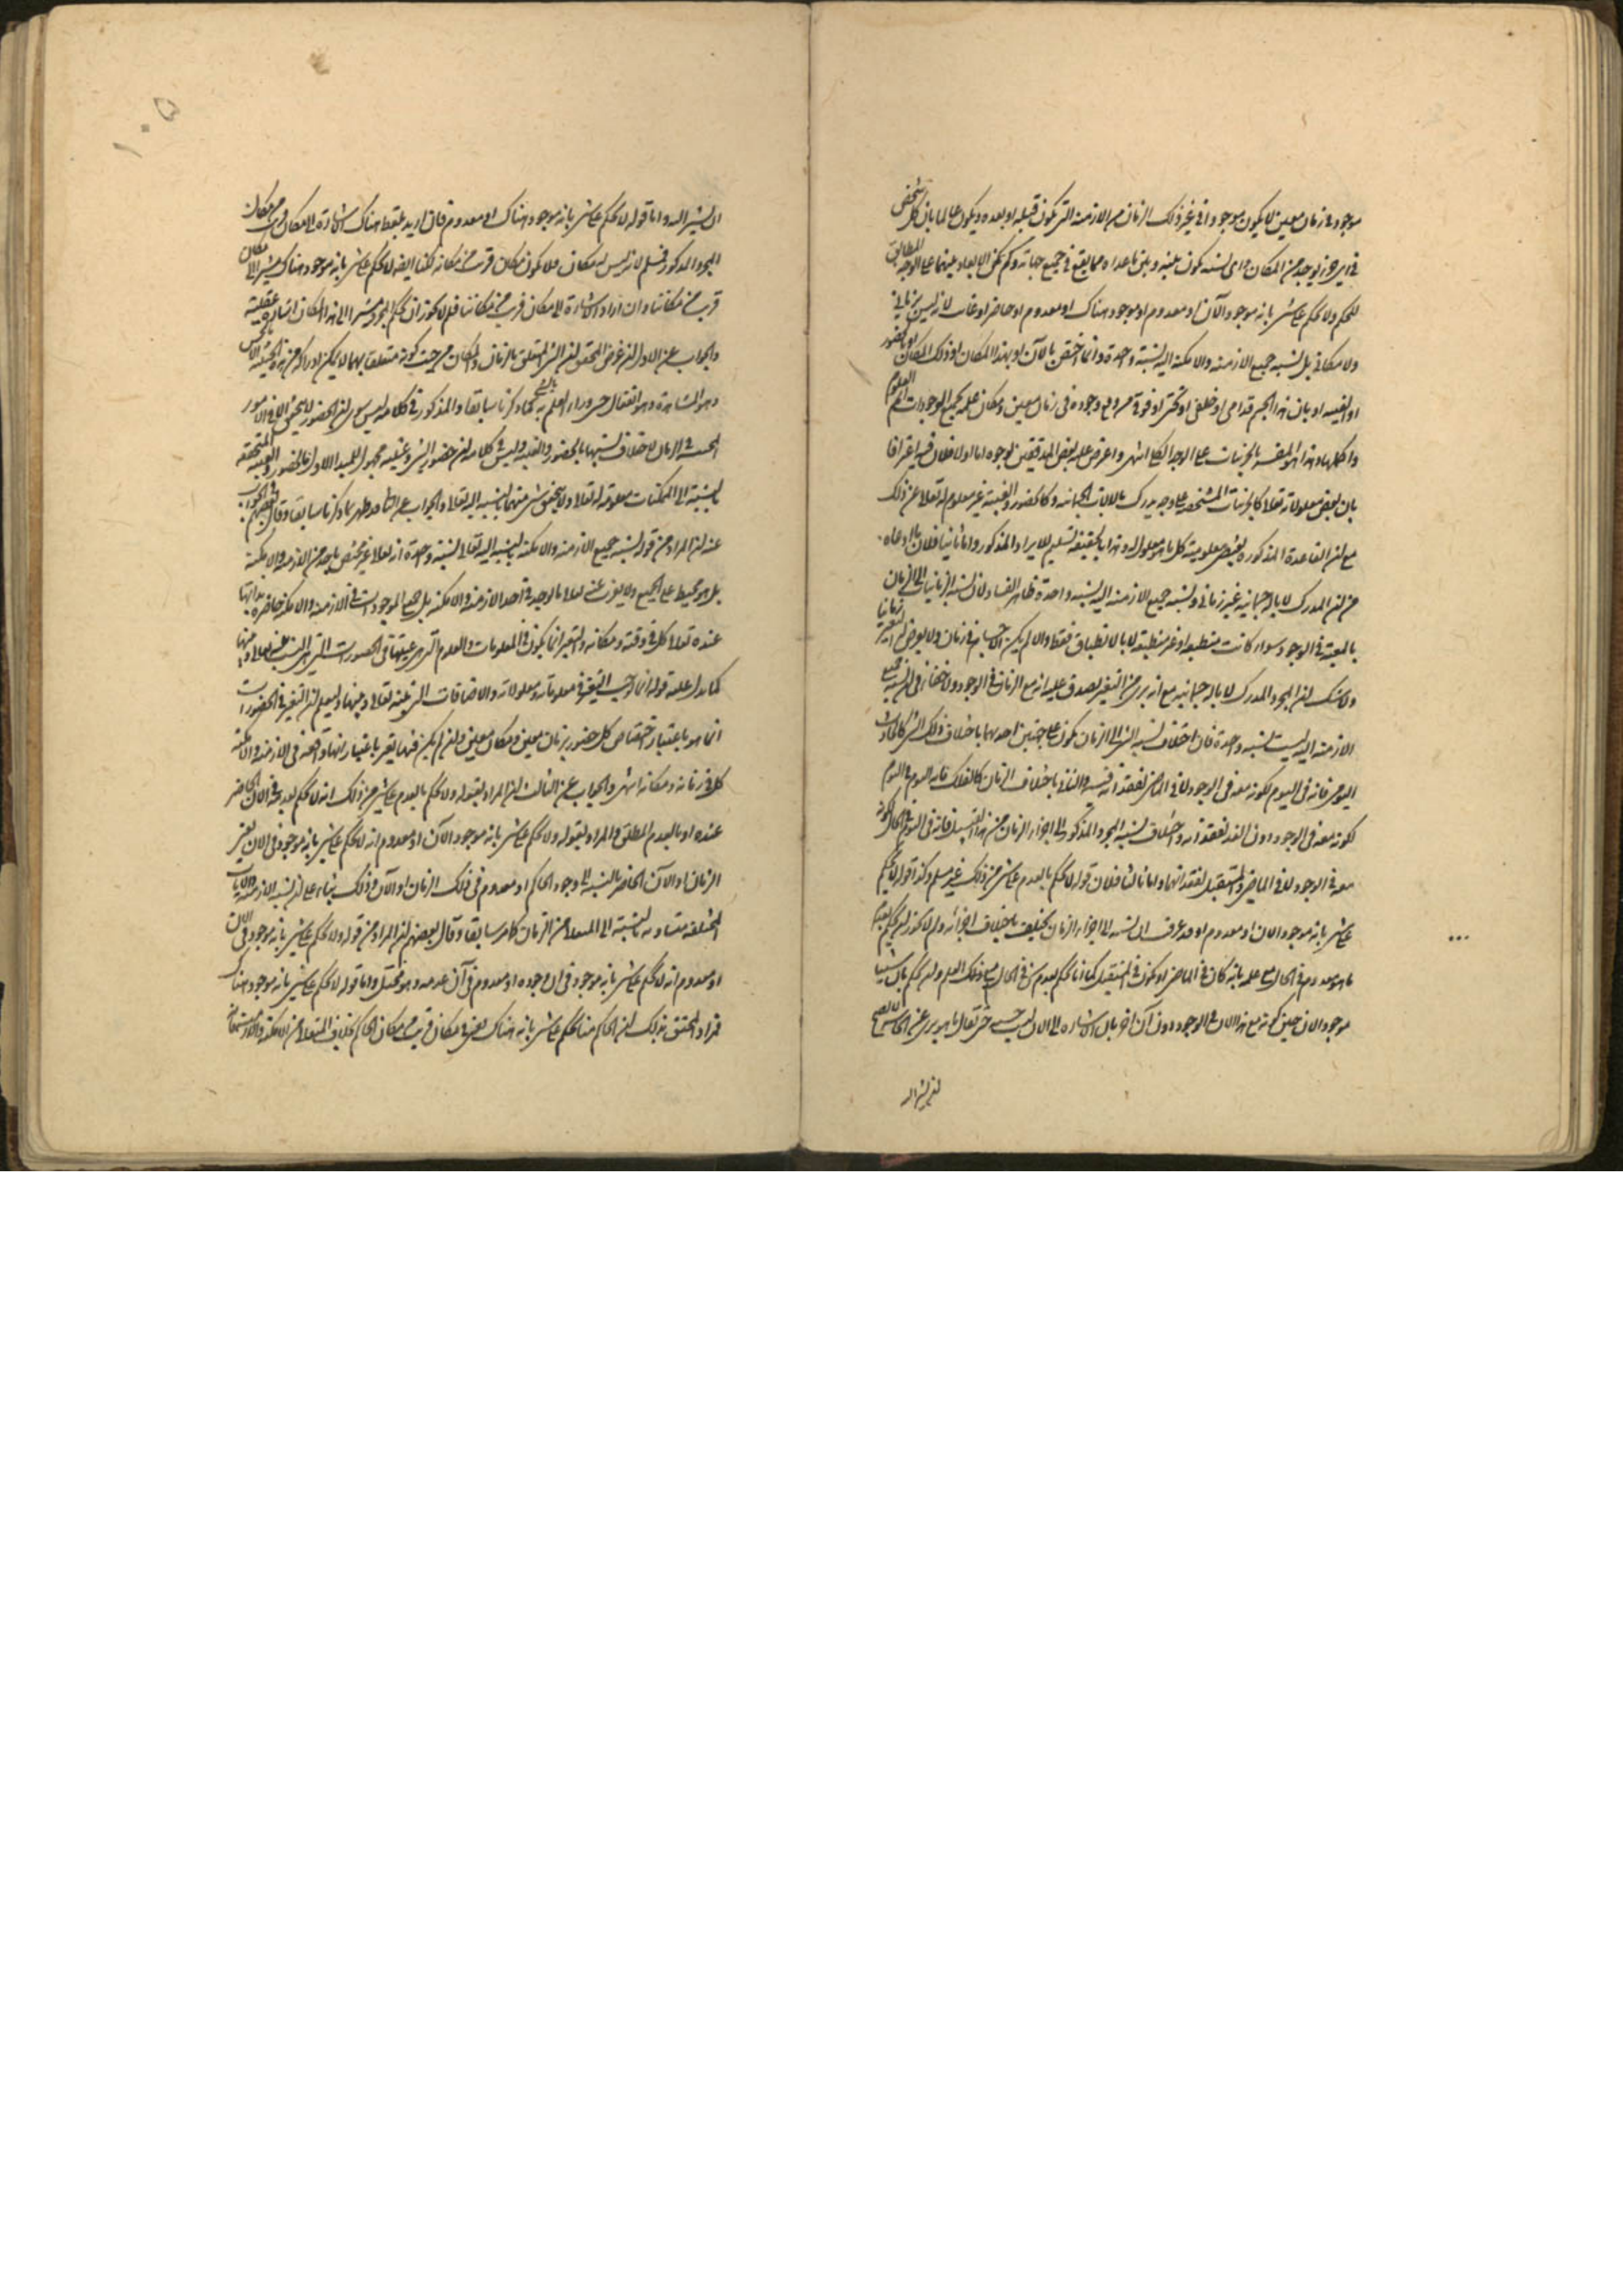 موجود فى زمان معين لا يكون موجودا فى غير ذلك الزمان من الازمنة التى تكون قبله او بعده ويكون عالما بان كل شخص
فى اى جزء يوجد من المكان واى نسبة تكون بينه وبين ما عداه مما يقع فى جميع جهاته وكم تكون الابعاد بينهما على الوجه المطابق
للحكم ولا يحكم على شىء بانه موجود الآن او معدوم او موجود هناك او معدوم او حاضر او غائب لانه ليس بزمانى
ولا مكانى بل نسبة جميع الازمنة والامكنة اليه نسبة واحدة وانما يختص بالآن او بهذا المكان او ذلك المكان او بالحضور
او الغيبة او بان هذا الجسم قدامى او خلفى او تحتى او فوقى من وقع وجوده فى زمان معين ومكان علمه بجميع الموجودات اتم العلوم
واكملها وهذا هو المفسر بالجزئيات على الوجه الكلى انتهى واعترض عليه بعض المدققين بوجوه اما اولا فلان فيه اعترافا
بان بعض معلولاته تعالى كالجزئيات المشخصة على وجه يدرك بالالات الجسمانية وكالحضور والغيبة غير معلوم له تعالى عن ذلك
مع ان القاعدة المذكورة يقتضى معلومية كل ما هو معلول له وهذا بالحقيقة تسليم للايراد المذكور واما ثانيا فلان ما ادعاه
من ان المدرك لا بالة جسمانية غير زمانى ونسبة جميع الازمنة اليه نسبة واحدة ظاهر الفساد لان نسبة الزمانيات الى الزمان
بالمعية فى الوجود سواء كانت منطبقة او غير منطبقة لا بالانطباق فقط والا لم يكن الاجسام فى زمان ولا يعرض لها تغير زمانيا
ولا شك ان المجرد المدرك لا بالة جسمانية مع انه برىء من التغير يصدق عليه انه مع الزمان فى الوجود ولا خفاء فى ان نسبة جميع
الازمنة اليه ليست نسبة واحدة فان اختلاف نسبة الشىء الى الزمان يكون على وجهين احدهما باختلاف ذلك الشىء كالحادث
اليومى فانه فى اليوم لكونه معه فى الوجود لا فى الماضى لفقدانه فيه والثانى باختلاف الزمان كالفلك فانه اليوم فى اليوم
لكونه معه فى الوجود دون الغد لفقدانه واختلاف نسبة المجرد المذكور الى اجزاء الزمان من هذا القبيل فانه فى اليوم فى الحال لكونه
معه فى الوجود لا فى الماضى والمستقبل لفقدانهما واما ثالثا فلان قوله لا يحكم بالعدم على شىء من ذلك غير مسلم وكذا قوله لا يحكم
على شىء بانه موجود الان او معدوم او قد عرفت ان نسبته الى اجزاء الزمان يختلف باختلاف اجزائه ولم لا يجوز ان يحكم بعدم
ما هو معدوم فى الحال مع علمه بانه كان فى الماضى او يكون فى المستقبل كما انا نحكم بعدم شىء فى الحال مع ذلك العلم وان يحكم بان شيئا
موجود الان حين كونه مع هذا الان فى الوجود دون آن آخر بان الاشارة الى الان ليست حسية حتى يقال ما هو برىء عن الحاس لا يصح
ان يشير اليه
١٠٥
ان يشير اليه واما قوله لا يحكم على شىء بانه موجود هناك او معدوم فان اريد بلفظ هناك الاشارة الى مكان قريب من مكان
المجرد المذكور فمسلم لانه ليس له مكان فلا يكون مكان قريب من مكانه لكنا ايضا لا نحكم على شىء بانه موجود هناك مشيرا الى مكان
قريب من مكاننا وان اراد الاشارة الى مكان قريب من مكاننا فلم لا يجوز ان يحكم المجرد مشيرا الى هذا المكان اشارة عقلية
والجواب عن الاول ان غرض المحقق ان الشىء المتعلق بالزمان والمكان من حيث كونه متعلقا بهما لا يمكن ادراكه من هذه الحيثية الا بالحس
وهو المشاهدة وهو انفعال حسى وراء العلم به كما ذكرنا سابقا والمذكور فى كلامه ليس سوى ان الحضور لا يتحقق الا فى الامور
بالنسبة الى الممكنات معلومة له تعالى ولا يتحقق شىء منهما بالنسبة اليه تعالى والجواب عن الثانى قد ظهر مما ذكرنا سابقا وقال بعضهم فى الجواب
عنه ان المراد من قوله نسبة جميع الازمنة والامكنة بالنسبة اليه تعالى نسبة واحدة انه تعالى غير مختص باحد من الازمنة والامكنة
بل هو محيط على الجميع ولا يعزب عنه تعالى ما لوجد فى احد الازمنة والامكنة بل جميع الموجودات فى الازمنة والامكنة حاضرة بذاتها
عنده تعالى كل فى وقته ومكانه والتغير انما يكون فى المعلومات والعلوم التى هى عينها فى الحضورات التى هى النسب بينه تعالى وبينها
كما يدل عليه قوله انما اوجب التغير فى معلوماته ومعلولاته والاضافات التى بينه تعالى وبينها وليعلم ان التغير فى الحضورات
انما هو باعتبار اختصاص كل حضور بزمان معين ومكان معين وان لم يكن فيها تغير باعتبار انها واقعة فى الازمنة والامكنة
كل فى زمانه ومكانه انتهى والجواب عن الثالث ان المراد بقوله ولا يحكم بالعدم على شىء من ذلك انه لا يحكم بعدمه فى الان الحاضر
عنده او بالعدم المطلق والمراد بقوله ولا يحكم على شىء بانه موجود الآن او معدوم انه لا يحكم على شىء بانه موجود فى الان يعنى
الزمان او الآن الحاضر بالنسبة الى وجود الحاكم او معدوم فى ذلك الزمان او الآن وذلك بناء على ان نسبة الازمنة والانات
المختلفة متساوية بالنسبة الى المتعالى من الزمان كما مر سابقا وقال بعضهم ان المراد من قوله ولا يحكم على شىء بانه موجود فى الان
او معدوم انه لا يحكم على شىء بانه موجود فى ان وجوده او معدوم فى آن عدمه وهو محتمل واما قوله لا يحكم على شىء بانه موجود هناك
فمراد المحقق بذلك ان الحاكم منا يحكم على شىء بانه هناك يعنى فى مكان قريب من مكان الحاكم بخلاف المتعالى من الامكنة